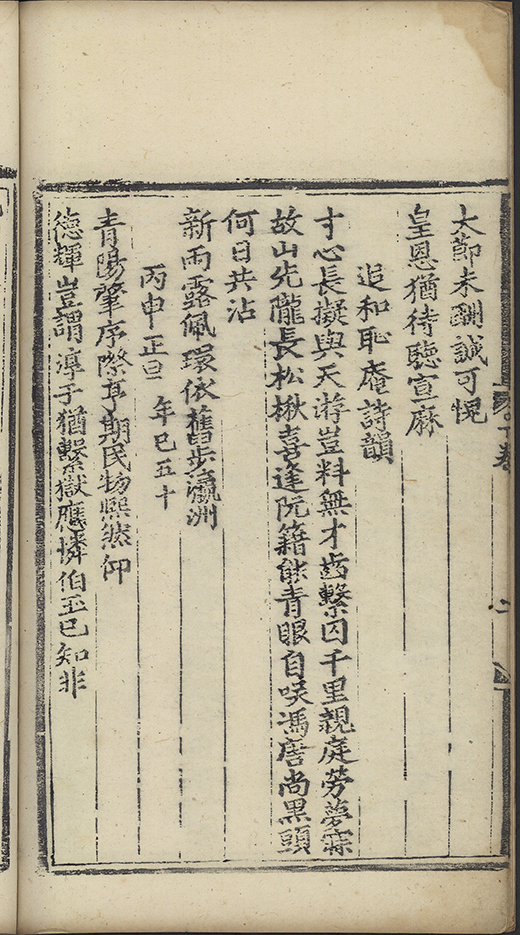 大節未酬誠可愧
皇恩猶待聽宣麻
追和恥庵詩韻
寸心長擬與天游豈料無才齒繫囚千里親庭勞夢寐
故山先隴長松楸喜逢阮籍能青眼自咲馮唐尚黑頭
何日共沾
新雨露佩環依舊步瀛洲
丙申正旦 年已五十
青陽肇序際亨期民物熙然仰
德輝豈謂淳于猶繫獄應憐伯玉已知非
下卷